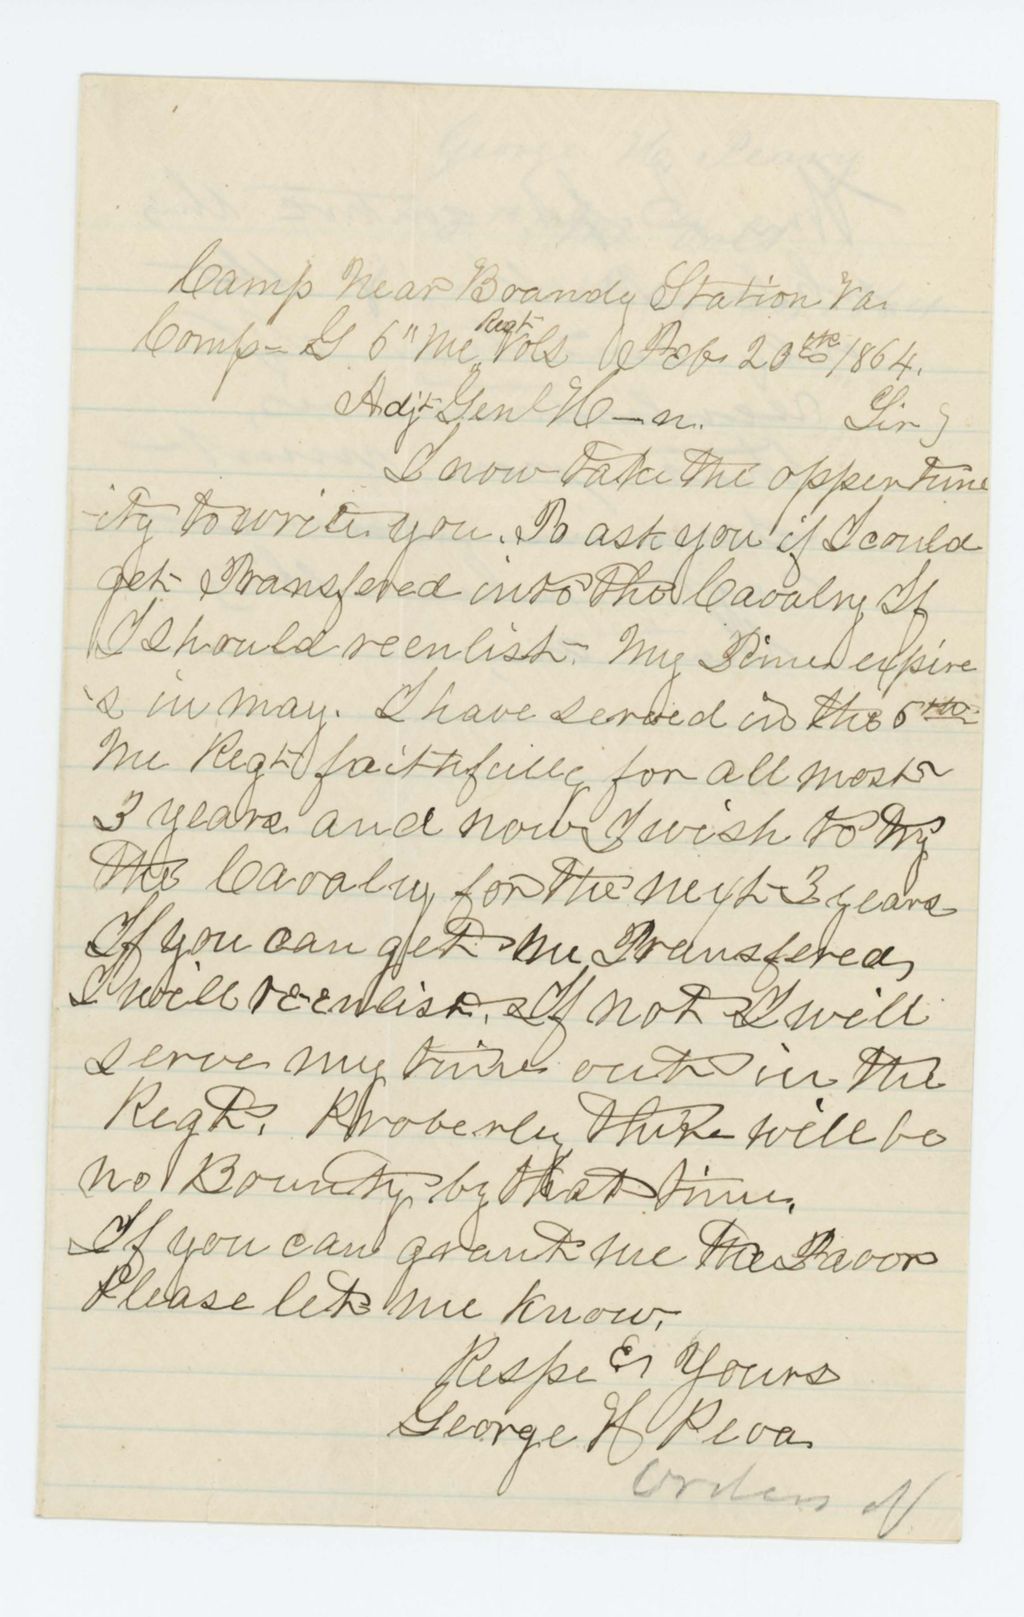 Camp Near Brandy Station Va.
Comp- G 6" Me Regt Vols Feb. 20th 1864.
Adjt Genl H-n. Sir
I now take the oppertune
-ity to write you. To ask you if I could
get Transfered into the Cavalry If
I should reenlist. My Time expire
's in may. I have served in the 6th
Me Regt faithfully for all most
3 years and now I wish to try
the Cavalry for the next 3 years
If you can get me Transfered,
I will reenlist. If not I will
serve my time out in the
Regt. Proberly there will be
no Bounty by that time.
If you can grant me the Favor
Please let me know.
Respe &, Yours
George H
Orders